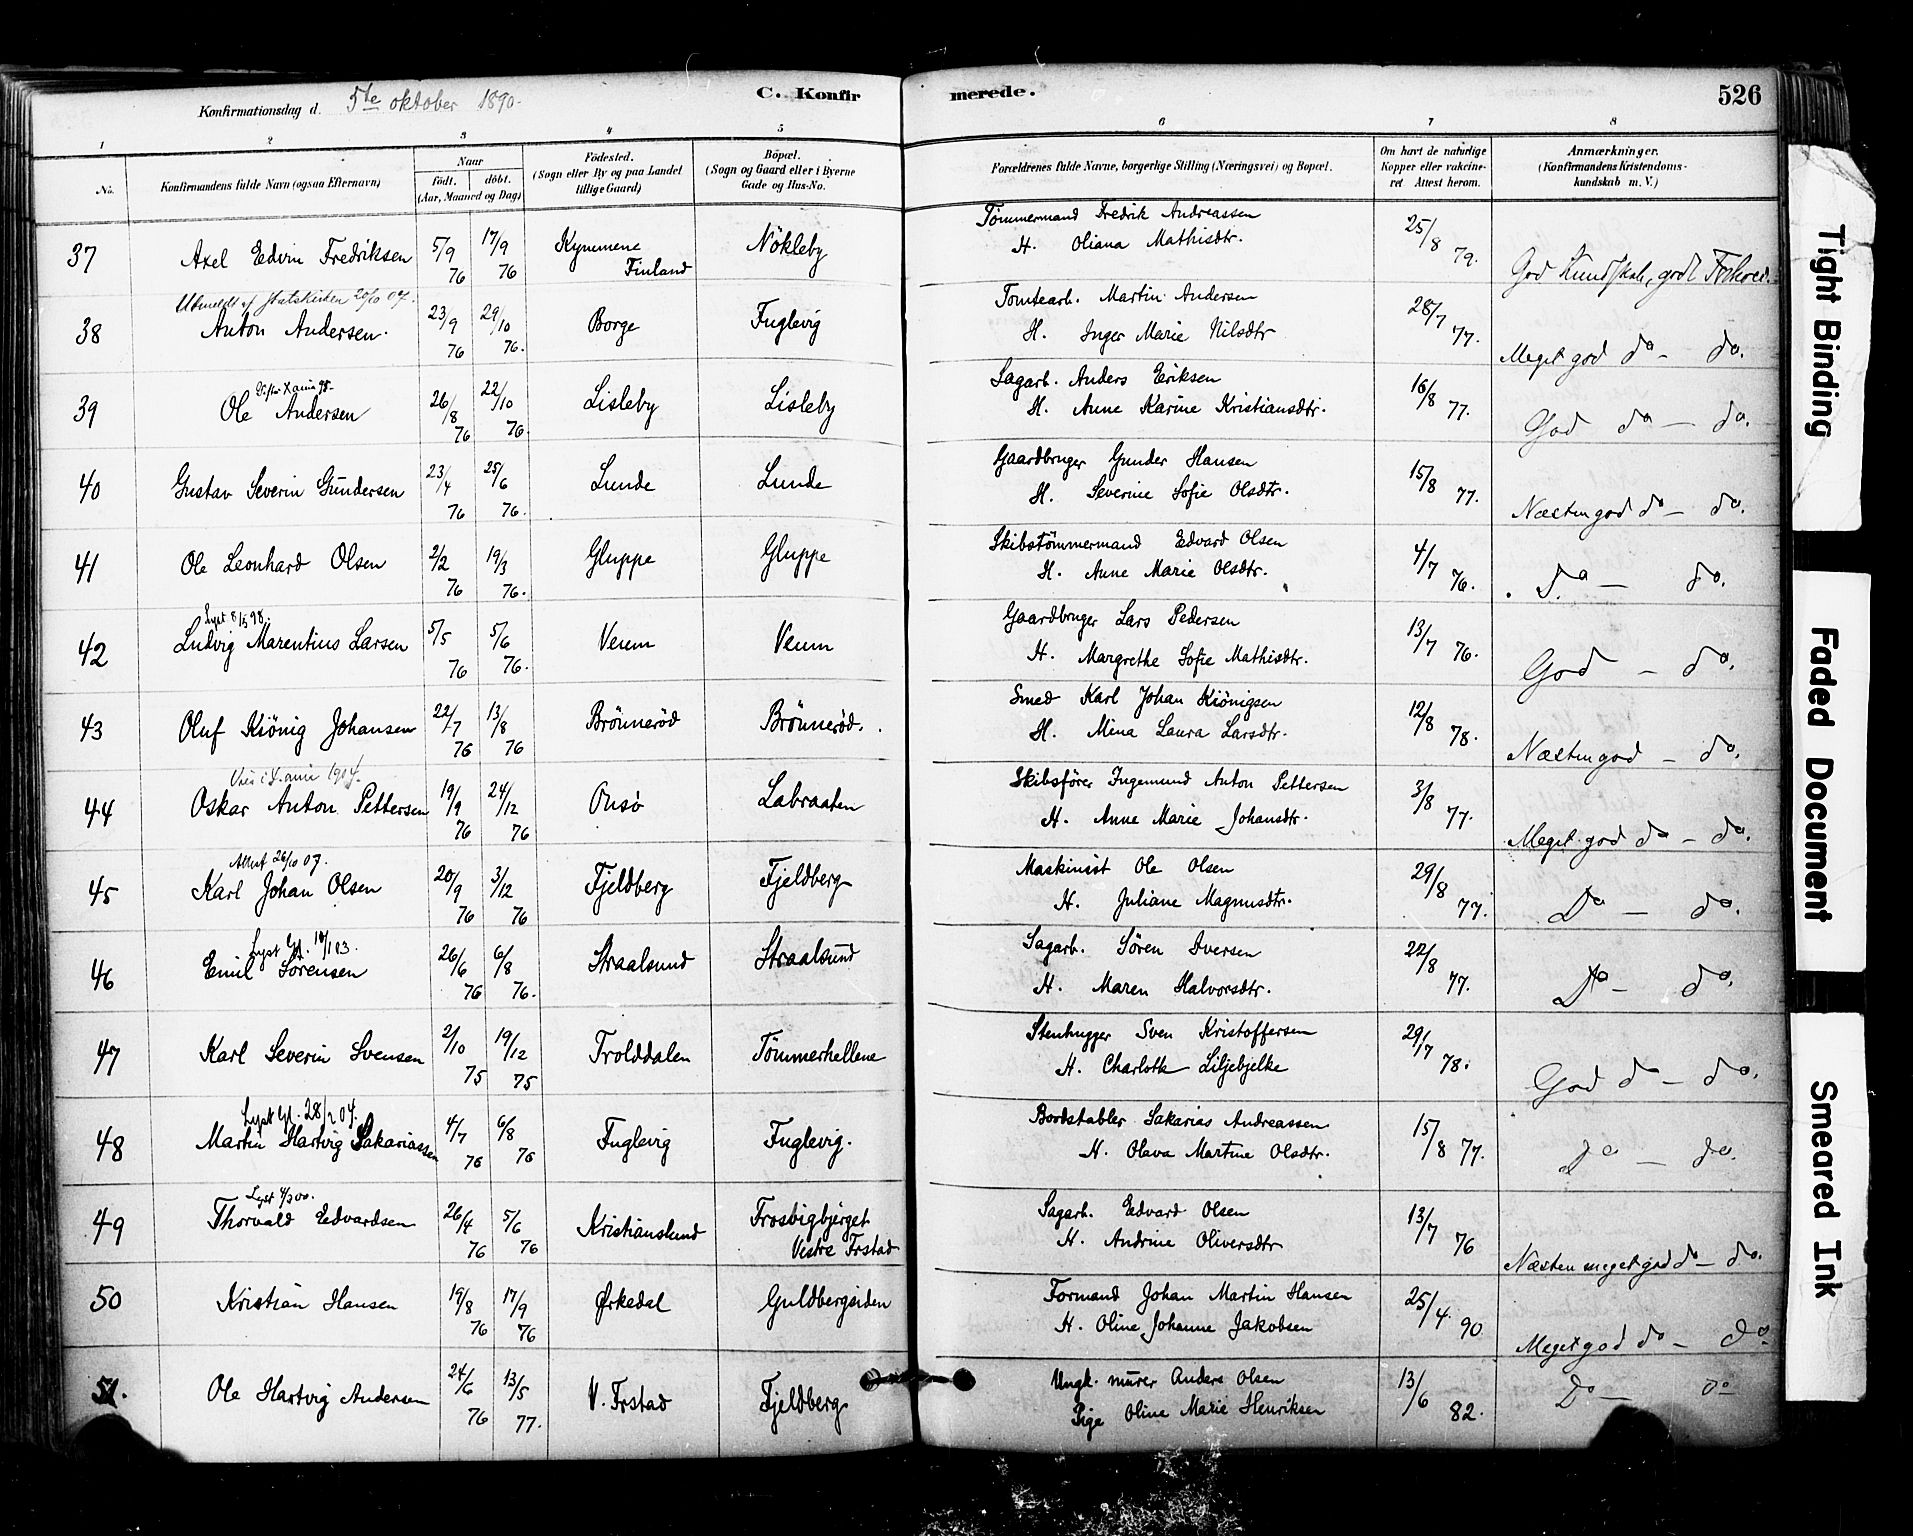 Konfirmationsdag d. 5te oktober 1890.
C. Konfir merede.
526
1 2 3 4 5 6 7 8
No.
Konfirmandens fulde Navn (ogsaa Efternavn)
Naar
födt. döbt.
(Aar, Maaned og Dag)
Födested.
(Sogn eller By og paa Landet
tillige Gaard)
Bopæl.
(Sogn og Gaard eller i Byerne
Gade og Hus-No.
Forældrenes fulde Navne, borgerlige Stilling (Næringsvei) og Bopæl.
Om havt de naturlige
Kopper eller vakcine-
ret Attest herom.
Anmærkninger.
(Konfirmandens Kristendoms-
kundskab m. V.)
37 Axel Edvin Fredriksen 5/9 76 17/9 76 Kymmene Finland Nökleby
Tömmermand Fredrik Andreassen
H. Oliana Mathisdtr. 25/8 79. God Kundskab, godt Forhold.
Udmeldt af Statskirken 20/10 07.
38 Anton Andersen. 23/9 76 29/10 76. Borge Fuglevig
Tomtearb. Martin Andersen
H. Inger Marie Nilsdtr 28/7 77. Meget god do - do.
39 Ole Andersen 26/8 76 22/10 76. Lisleby Lisleby
Sagarb. Anders Eriksen
H. Anne Karine Kristiansdtr. 16/8 77. God do - do.
40 Gustav Severin Gundersen 23/4 76 25/6 76. Lunde Lunde
Gaardbruger Gunder Hansen
H. Severine Sofie Olsdtr. 15/8 77. Næsten god do - do.
41 Ole Leonhard Olsen 2/2 76 19/3 76. Gluppe Gluppe
Skibstömmermand Edvard Olsen
H. Anne Marie Olsdtr. 4/7 76. Do. - do.
Lyst 8/5 98.
42 Ludvig Marentius Larsen 5/5 76 5/6 76. Veum Veum
Gaardbruger Lars Pedersen
H. Margrethe Sofie Mathisdtr. 13/7 76. God - do.
43 Oluf Kiönig Johansen 22/7 76 13/8 76 Brönneröd Brönneröd.
Smed Karl Johan Kiönigsen
H. Mina Laura Larsdtr. 12/8 78. Næsten god - do.
44 Oskar Anton Pettersen 19/9 76 24/12 76 Onsö Labraaten
Skibsförer Ingemund Anton Pettersen
H. Anne Marie Johansdtr. 3/8 77. Meget god do - do.
Attest 26/10 07.
45 Karl Johan Olsen 20/9 76 3/12 76 Fjeldberg Fjeldberg
Maskinist Ole Olsen
H. Juliane Magnusdtr. 29/8 77. Do - do.
46 Emil Sörensen 26/6 76 6/8 76. Straalsund Straalsund
Sagarb. Sören Iversen
H. Maren Halvorsdtr. 22/8 77. Do - do.
47 Karl Severin Svensen 2/10 75 19/12 75 Trolddalen Tömmerhellene
Stenhugger Sven Kristoffersen
H. Charlotte Liljebjelke 29/7 78. God do - do.
Lyst Gl. 28/2 04.
48 Martin Hartvig Sakariassen 4/7 76 6/8 76 Fuglevig Fuglevig.
Bordstabler Sakarias Andreassen
H. Olava Martine Olsdtr. 15/8 77. Do - do.
49 Thorvald Edvardsen 26/4 76 5/6 76 Kristianslund Trosvigbjerget Vestre Frstad
Sagarb. Edvard Olsen
H. Andrine Oliversdtr 13/7 76 Næsten meget god do - do.
50 Kristian Hansen 19/8 76 17/9 76 Ørkedal Guldbergsiden
Formand Johan Martin Hansen
H. Oline Johanne Jakobsen 25/4. 90 Meget god do - do.
51. Ole Hartvig Andersen 24/6 76 13/5 77. V. Frstad Fjeldberg
Ungk. murer Anders Olsen
Pige Oline Marie Henriksen 13/6 82. Do - do
Tight Binding
Faded Document
Smeared Ink